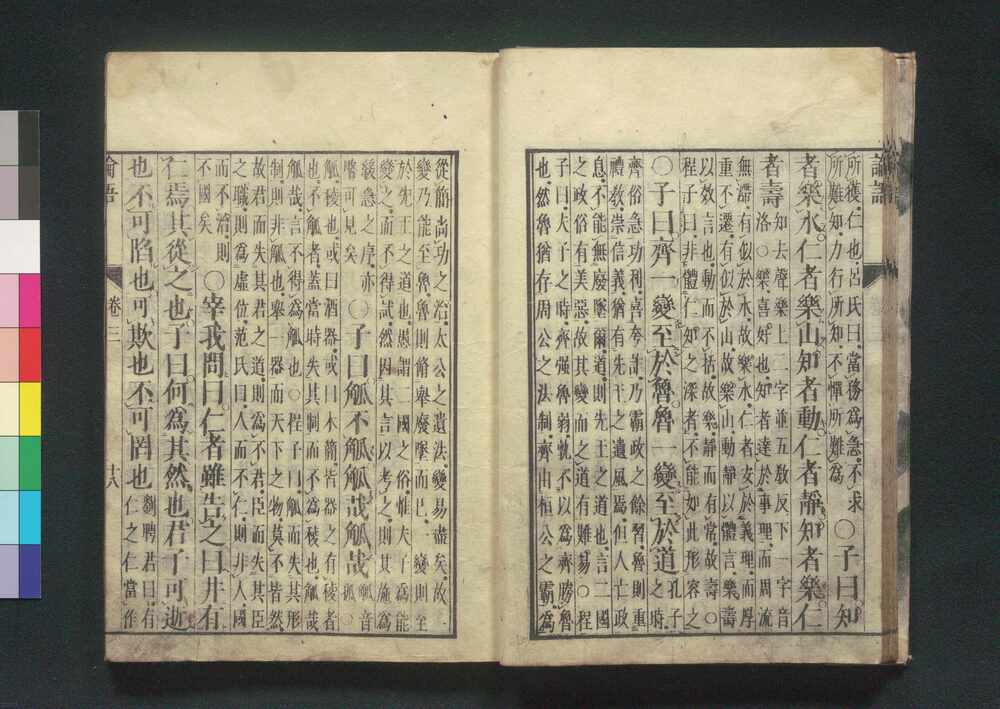 論語
所獲仁也呂氏曰當務爲急不求
所難知力行所知不憚所難爲
○子曰知
者樂水仁者樂山知者動仁者靜知者樂仁
者壽
知去聲樂上二字並五教反下一字音
洛○樂喜好也知者達於事理而周流
無滯有似於水故樂水仁者安於義理而厚
重不遷有似於山故樂山動靜以體言樂壽
以效言也動而不括故樂靜而有常故壽○
程子曰非體仁知之深者不能如此形容之
○子曰齊一變至於魯魯一變至於道
孔子
之時
齊俗急功利喜夸詐乃霸政之餘習魯則重
禮教崇信義猶有先王之遺風焉但人亡政
息不能無廢墜爾道則先王之道也言二國
之政俗有美惡故其變而之道有難易○程
子曰夫子之時齊强魯弱孰不以爲齊勝魯
也然魯猶存周公之法制齊由桓公之霸爲
從簡尚功之治太公之遺法變易盡矣故一
變乃能至魯魯則脩舉廢墜而已一變則至
於先王之道也愚謂二國之俗惟夫子爲能
變之而不得試然因其言以考之則其施爲
緩急之序亦
畧可見矣
○子曰觚不觚觚哉觚哉
觚音
孤
觚棱也或曰酒器或曰木簡皆器之有棱者
也不觚者蓋當時失其制而不爲棱也觚哉
觚哉言不得爲觚也○程子曰觚而失其形
制則非觚也舉一器而天下之物莫不皆然
故君而失其君之道則爲不君臣而失其臣
之職則爲虛位范氏曰人而不仁則非人國
而不治則
不國矣
○宰我問曰仁者雖告之曰井有
仁焉其從之也子曰何爲其然也君子可逝
也不可陷也可欺也不可罔也
劉聘君曰有
仁之仁當作
論語
卷三
十八